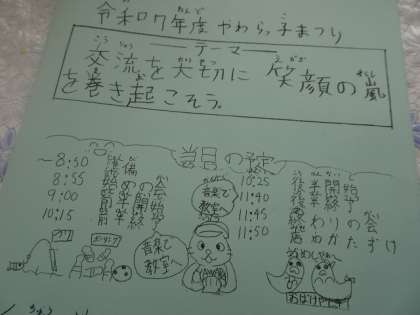 令和07年度 やわらっ子まつり
テーマ
交流を大切に 笑顔の嵐
を巻き起こそう。
当日の予定
〜8:50 準備
8:55 始めの会
9:00 前半開始
10:15 前半終了
10:25 後半開始
11:40 後半終了
11:45 終わりの会
11:50 店のかたずけ
音楽で
教室へ
音楽で
教室へ
おばけやしき